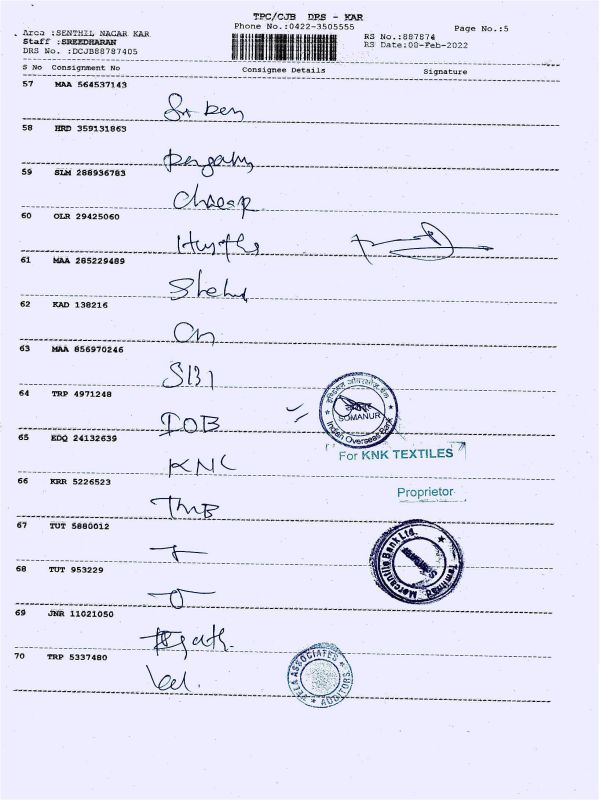 TPC/CJB DRS - KAR
Phone No.:0422-3505555
Page No.:5
Area :SENTHIL NAGAR KAR
Staff :SREEDHARAN
DRS No. :DCJB88787405
RS No.:887874
RS Date:08-Feb-2022
S No Consignment No Consignee Details Signature
57 MAA 564537143
58 HRD 359131863
59 SLM 288936783
60 OLR 29425060
61 MAA 285229489
62 KAD 138216
63 MAA 856970246
SBI
64 TRP 4971248
IOB
SOMANUR
Indian Overseas Bank
65 EDQ 24132639
KNC
For KNK TEXTILES
66 KRR 5226523
TMB
Proprietor
67 TUT 5880012
68 TUT 953229
Tamilnad Mercantile Bank Ltd.
69 JNR 11021050
70 TRP 5337480
VELA ASSOCIATES
AUDITORS